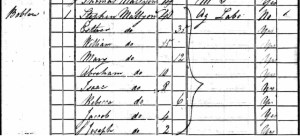 Thomas
Boblow 1 Stephen Mallyon 40 Ag Lab No
Esther do 35 Yes
William do 15 Yes
Mary do 12 Yes
Abraham do 10 Yes
Isaac do 8 Yes
Rebecca do 6 Yes
Jacob do 4 Yes
Joseph do 2 Yes